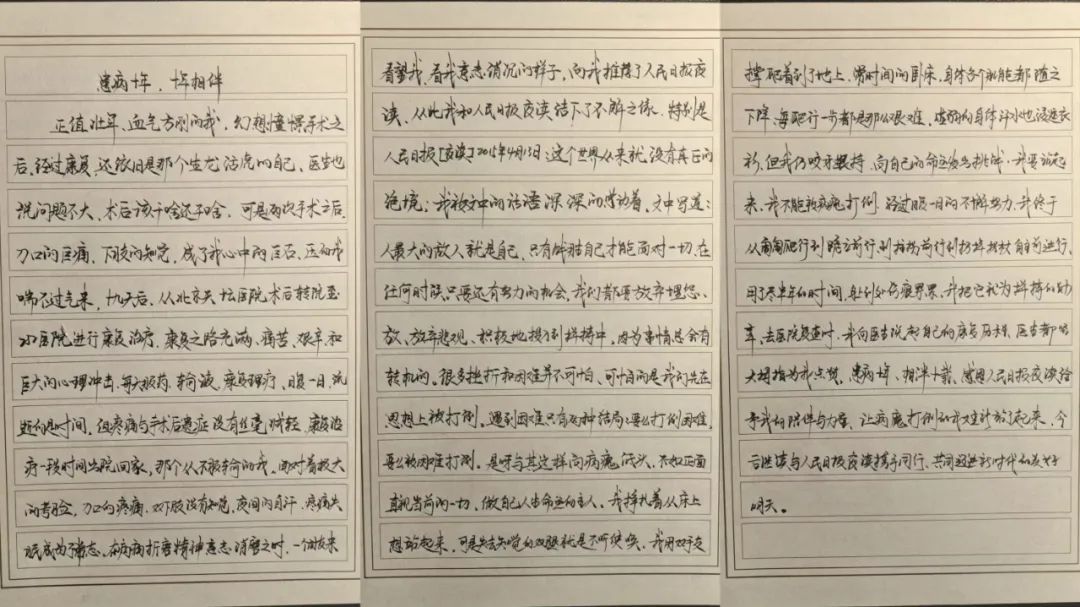 患病十年,一路相伴
正值壮年、血气方刚的我,幻想憧憬手术之
后,经过康复,还依旧是那个生龙活虎的自己,医生也
说问题不大,术后该干啥还干啥,可是两次手术之后,
刀口的巨痛,下肢的知觉,成了我心中的巨石,压的我
喘不过气来,十九天后,从北京天坛医院术后转院至
医院进行康复治疗,康复之路充满、痛苦、艰辛和
巨大的心理冲击,每天服药、输液、康复理疗,日复一日,流
逝的是时间,但疼痛与手术后遗症没有丝毫减轻,康复治
疗一段时间出院回家,那个从不服输的我,面对着极大
的考验,刀口的疼痛,双下肢没有知觉,夜间的自汗,疼痛失
眠成为了常态,在病痛折磨精神意志消磨之时,一个朋友来
看望我,看我意志消沉的样子,向我推荐了人民日报夜
读,从此我和人民日报夜读结下了不解之缘,特别是
人民日报[夜读]2015年4月13日:这个世界从来就没有真正的
绝境;我被文中的话语深深的感动着,文中写道:
人最大的敌人就是自己,只有战胜自己才能面对一切,在
任何时候,只要还有努力的机会,我们都要放弃埋怨、
放弃悲观、积极地投入到拼搏中,因为事情总会有
转机的。很多挫折和困难并不可怕,可怕的是我们先在
思想上被打倒。遇到困难只有两种结局:要么打倒困难,
要么被困难打倒。是呀与其这样向病魔低头,不如正面
直视当前的一切,做自己人生命运的主人。我挣扎着从床上
想站起来,可是失去知觉的双腿就是不听使唤,我用双手支
撑爬着到了地上,长时间的卧床,身体各个机能都随之
下降,每爬行一步都是那么艰难,虚弱的身体汗水也浸透衣
衫,但我仍咬牙坚持,向自己的命运发出挑战,我要站起
来,我不能被病魔打倒,经过日复一日的不懈努力,我终于
从匍匐爬行到跪立前行,到拄拐前行到扔掉拐杖自主前行,
用了多半年的时间,身上多处伤痕累累,我把它视为拼搏的勋
章,去医院复查时,我向医生说起自己的康复历程,医生都竖
大拇指为我点赞,患病十年、相伴十载,感恩人民日报夜读给
予我的陪伴与力量,让病魔打倒的我又站了起来,今
后继续与人民日报夜读携手同行,共同迎进新时代的美好
明天。